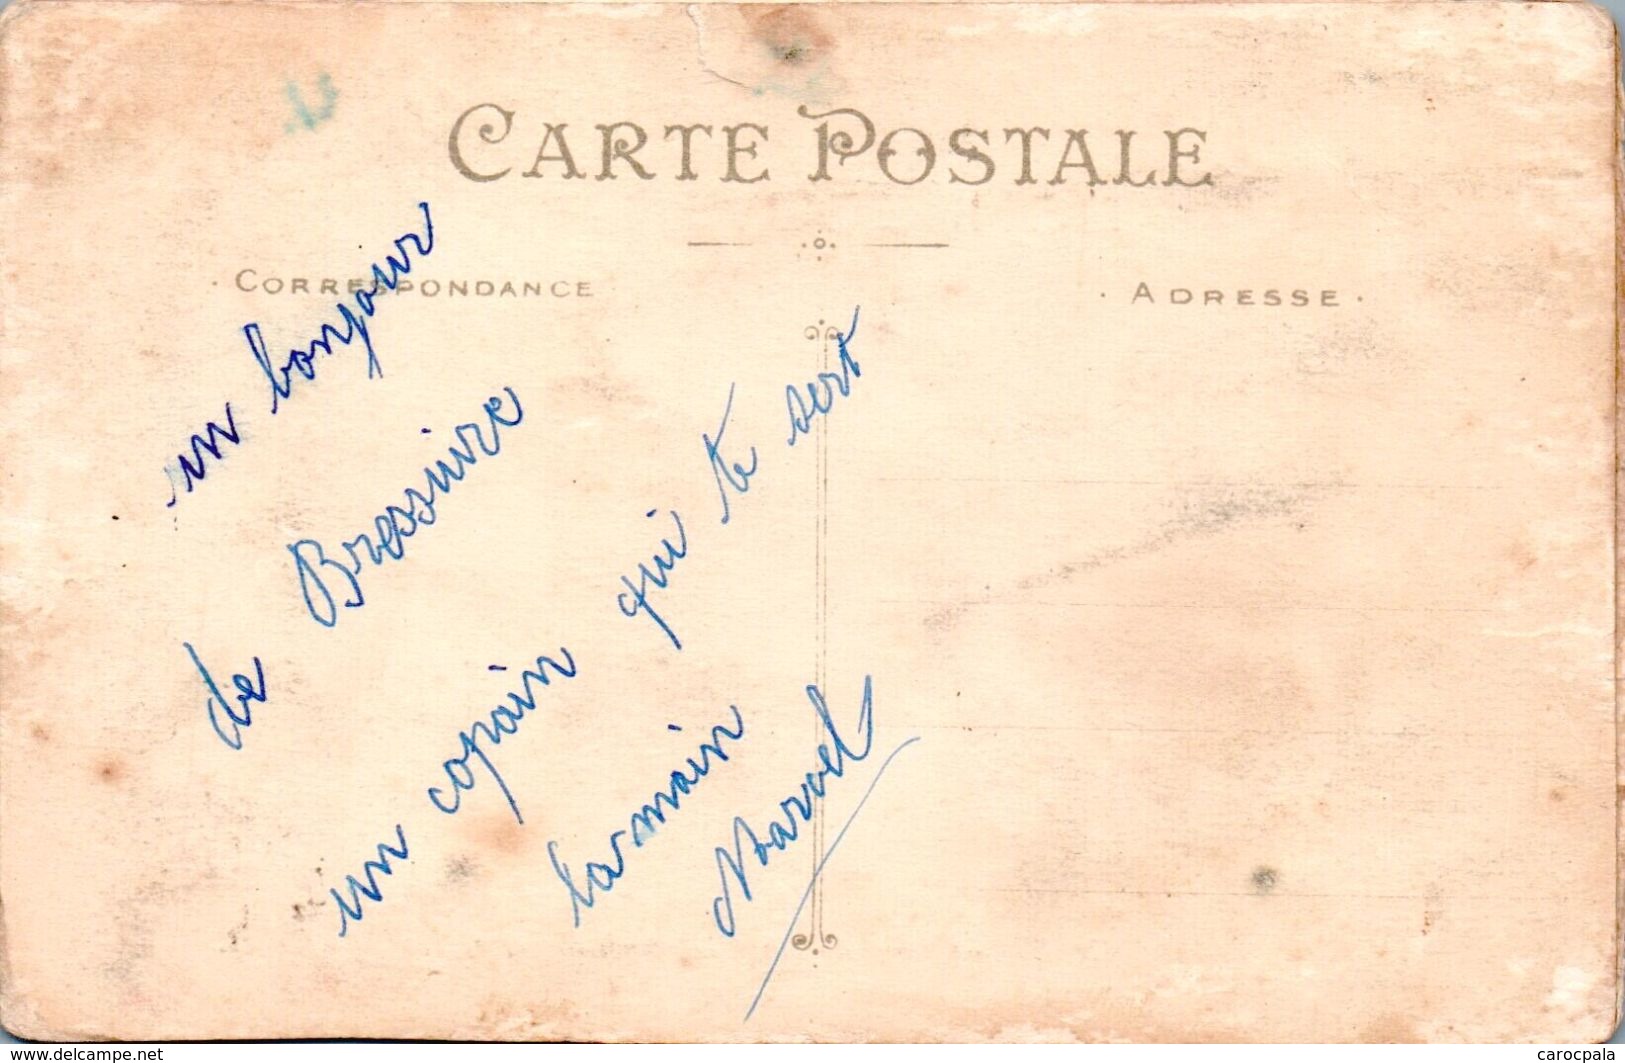 CARTE POSTALE
CORRESPONDANCE
ADRESSE
un bonjour
de Bressuire
un copain qui te sert
la main
Marcel
www.delcampe.net
carocpala